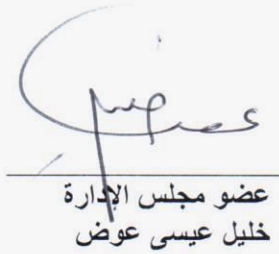 عضو مجلس الإدارة
خليل عيسى عوض